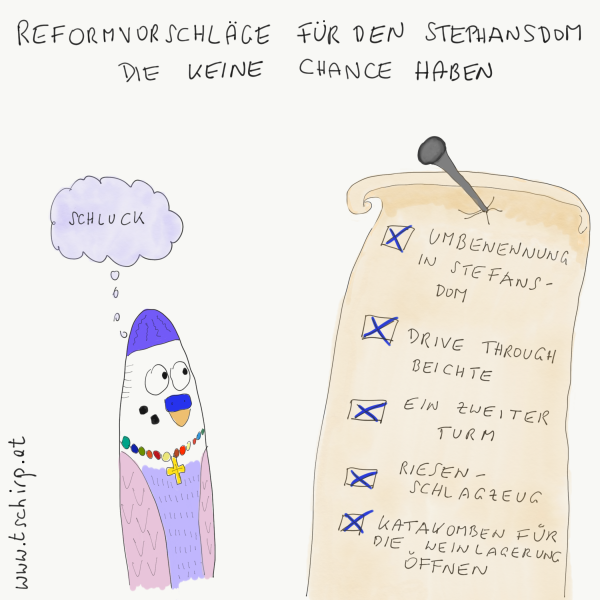 REFORMVORSCHLÄGE FÜR DEN STEPHANSDOM
DIE KEINE CHANCE HABEN
SCHLUCK
UMBENENNUNG
IN STEFANS-
DOM
DRIVE THROUGH
BEICHTE
EIN ZWEITER
TURM
RIESEN-
SCHLAGZEUG
KATAKOMBEN FÜR
DIE WEINLAGERUNG
ÖFFNEN
www.tschirp.at